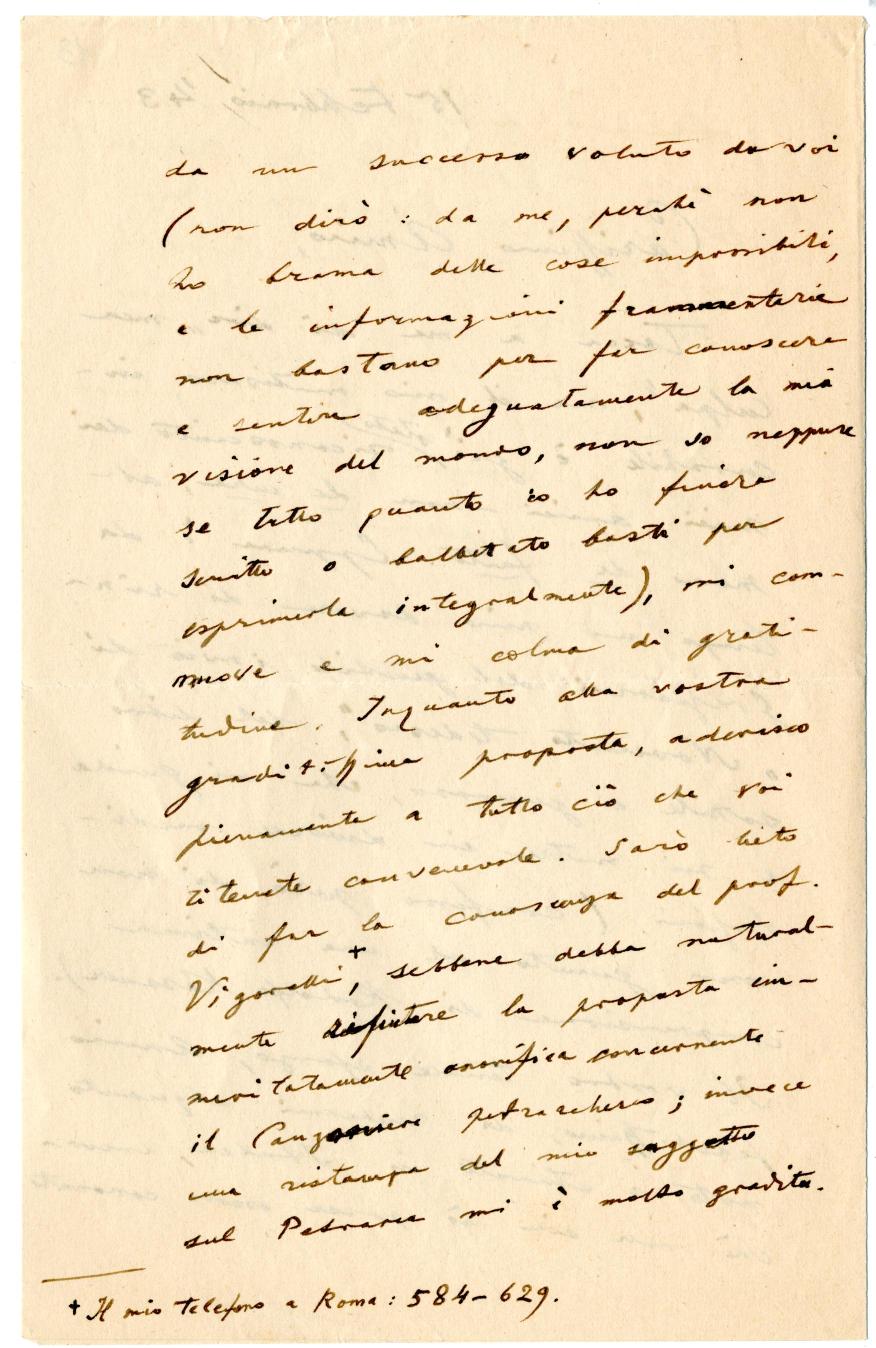 da un successo voluto da voi
(non dirò : da me, perchè non
ho brama delle cose impossibili,
e le informazioni frammentarie
non bastano per far conoscere
e sentire adeguatamente la mia
visione del mondo, non so neppure
se tutto quanto io ho finora
scritto o balbettato basti per
esprimerla integralmente), mi com-
muove e mi colma di grati-
tudine. Inquanto alla vostra
graditissima proposta, aderisco
pienamente a tutto ciò che voi
riterrete convenevole. Sarò lieto
di far la conoscenza del prof.
Vigorelli+, sebbene debba natural-
mente rifiutare la proposta im-
meritatamente onorifica concernente
il Canzoniere petrarchesco ; invece
una ristampa del mio saggetto
sul Petrarca mi è molto gradita.
+ Il mio telefono a Roma : 584-629.